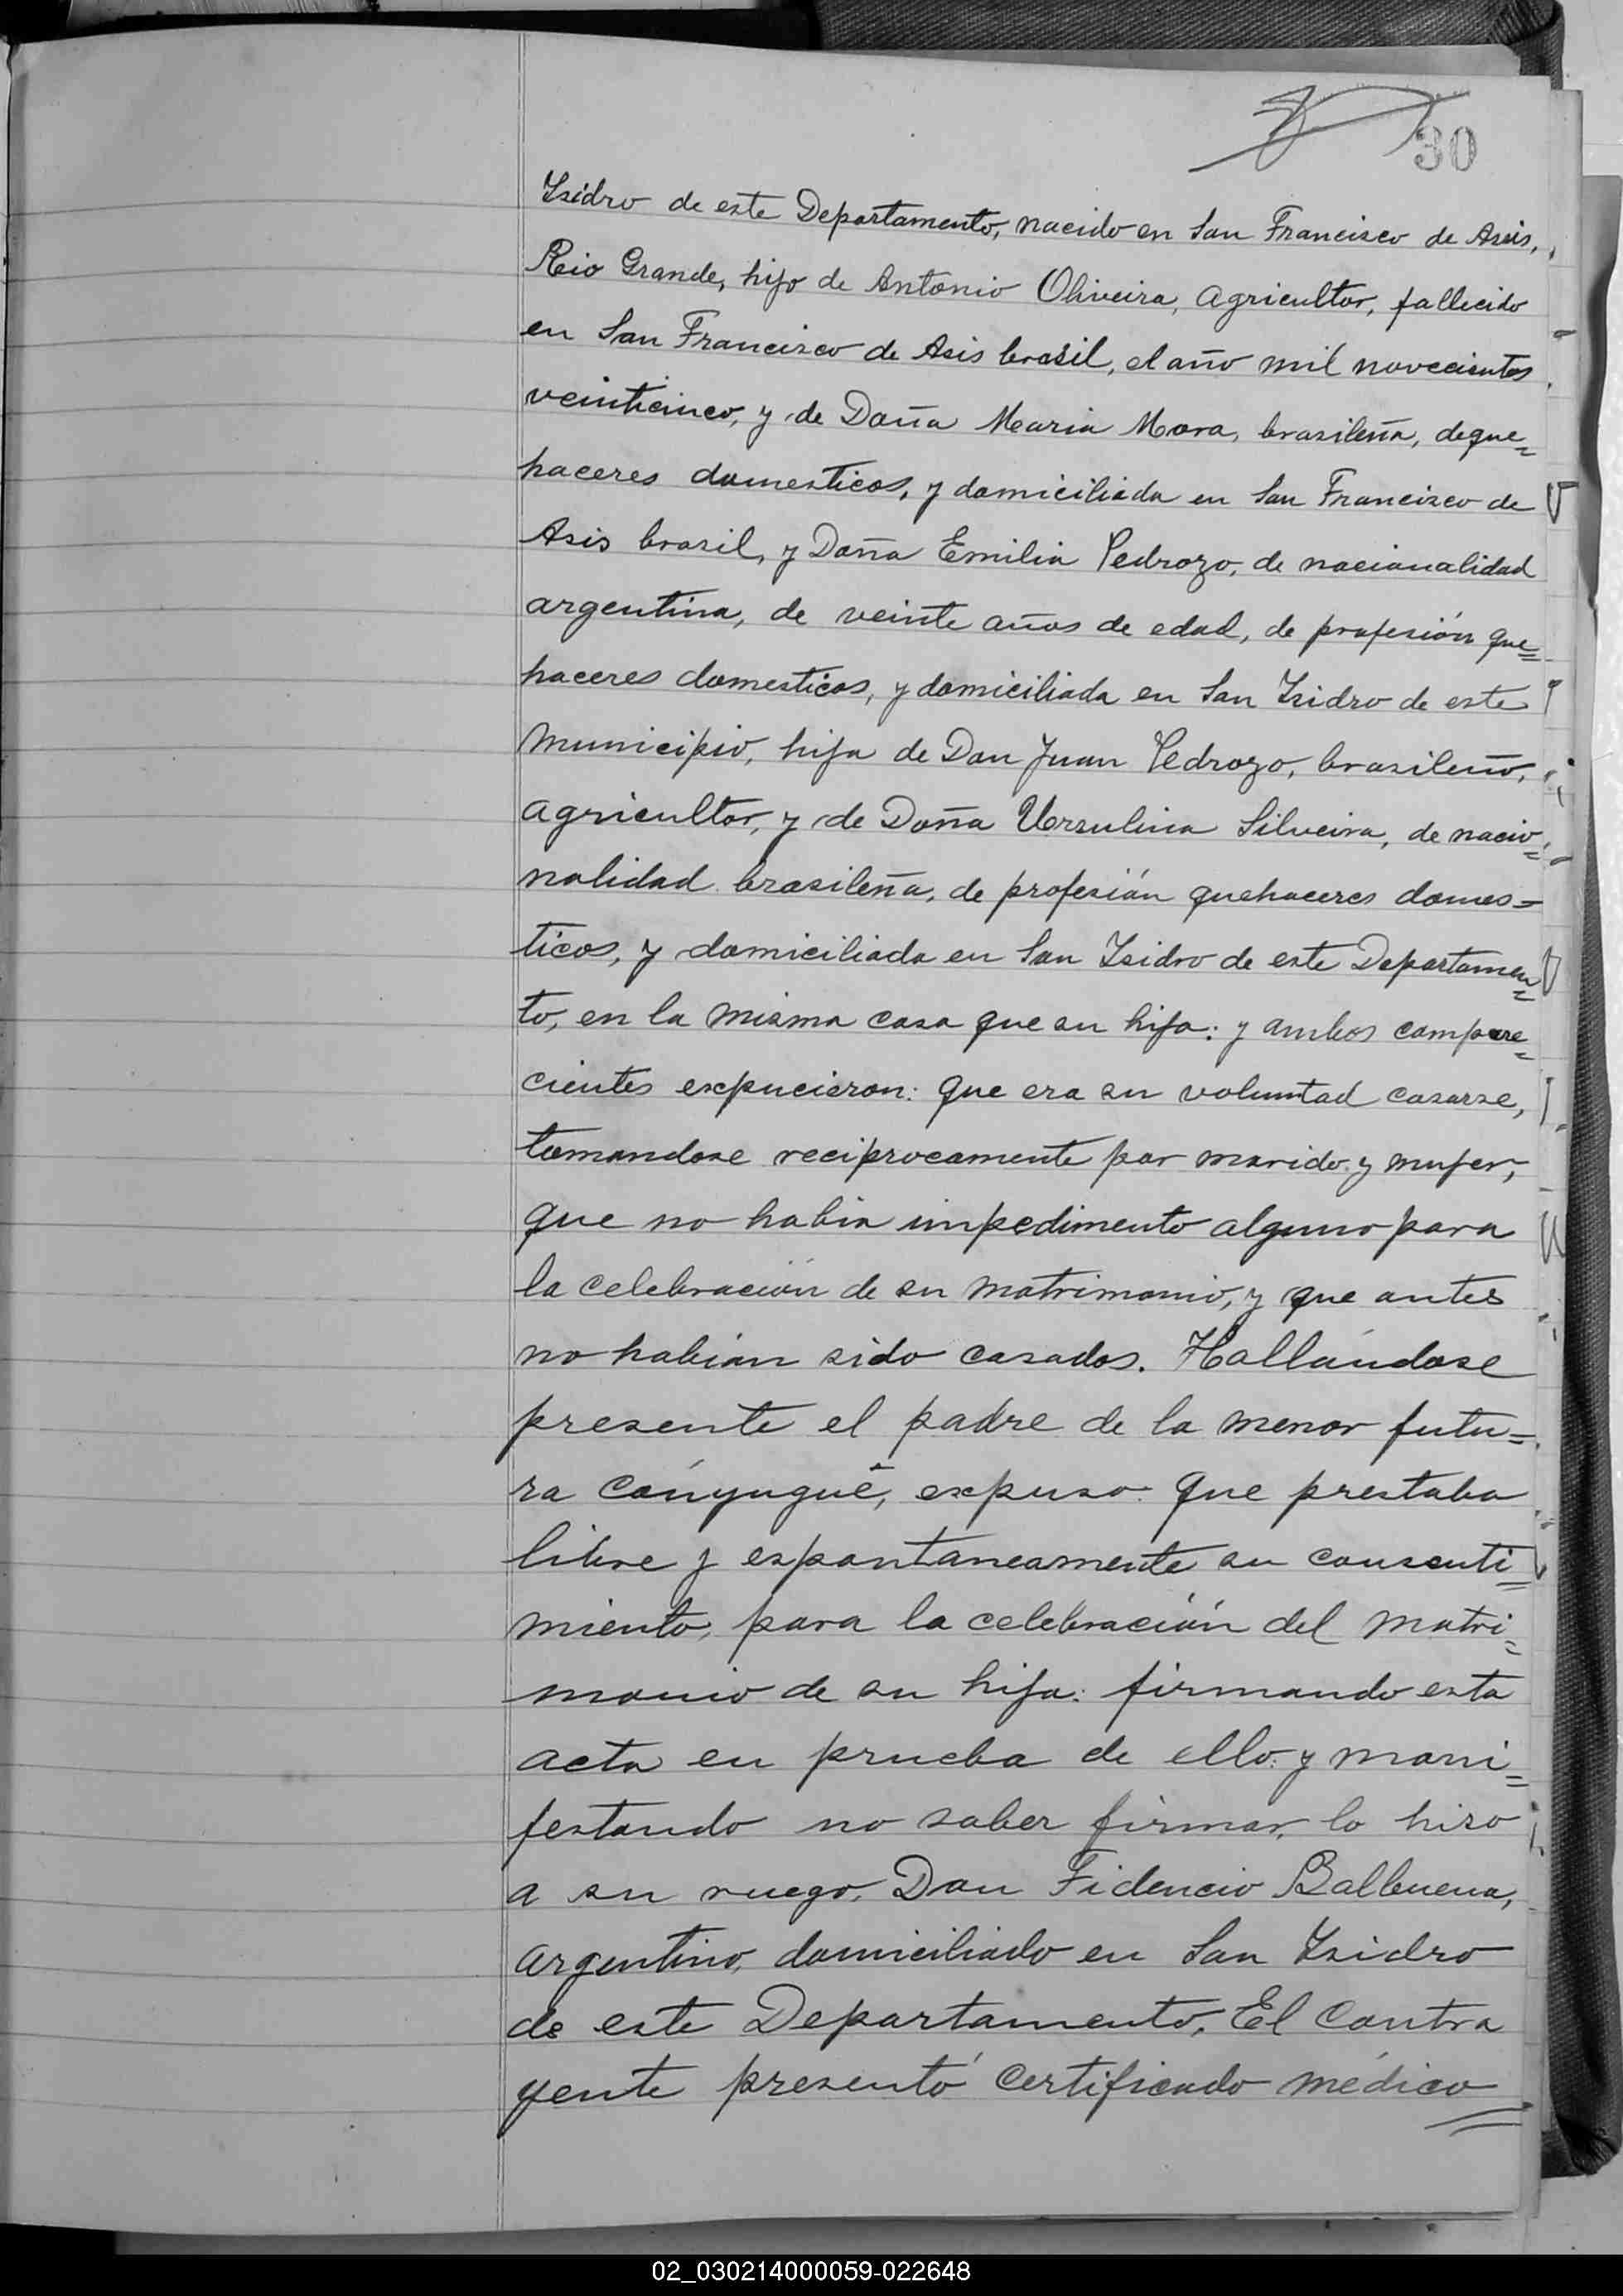 30
Isidro de este Departamento, nacido en San Francisco de Asis,
Rio Grande, hijo de Antonio Oliveira, agricultor, fallecido
en San Francisco de Asis brasil, el año mil novecientos
veinticinco, y de Doña Maria Mora, brasileña, de que=
haceres domesticos, y domiciliada en San Francisco de
Asis brasil, y Doña Emilia Pedrozo, de nacionalidad
argentina, de veinte años de edad, de profesión que=
haceres domesticos, y domiciliada en San Isidro de este
municipio, hija de Don Juan Pedrozo, brasileño,
agricultor, y de Doña Ursulina Silveira, de nacio=
nalidad brasileña, de profesión quehaceres domes=
ticos, y domiciliada en San Isidro de este Departamen=
to, en la misma casa que su hija: y ambos compare=
cientes expucieron: que era su voluntad casarse,
tomandose reciprocamente por marido y mujer,
que no habia impedimento alguno para
la celebración de su matrimonio, y que antes
no habian sido casados. Hallándose
presente el padre de la menor futu=
ra cónyugue, expuso: que prestaba
libre y espontaneamente su consenti=
miento, para la celebración del matri=
monio de su hija: firmando esta
acta en prueba de ello: y mani=
festando no saber firmar, lo hiso
a su ruego, Don Fidencio Balbuena,
argentino, domiciliado en San Isidro
de este Departamento. El contra
yente presentó certificado médico
02_030214000059-022648